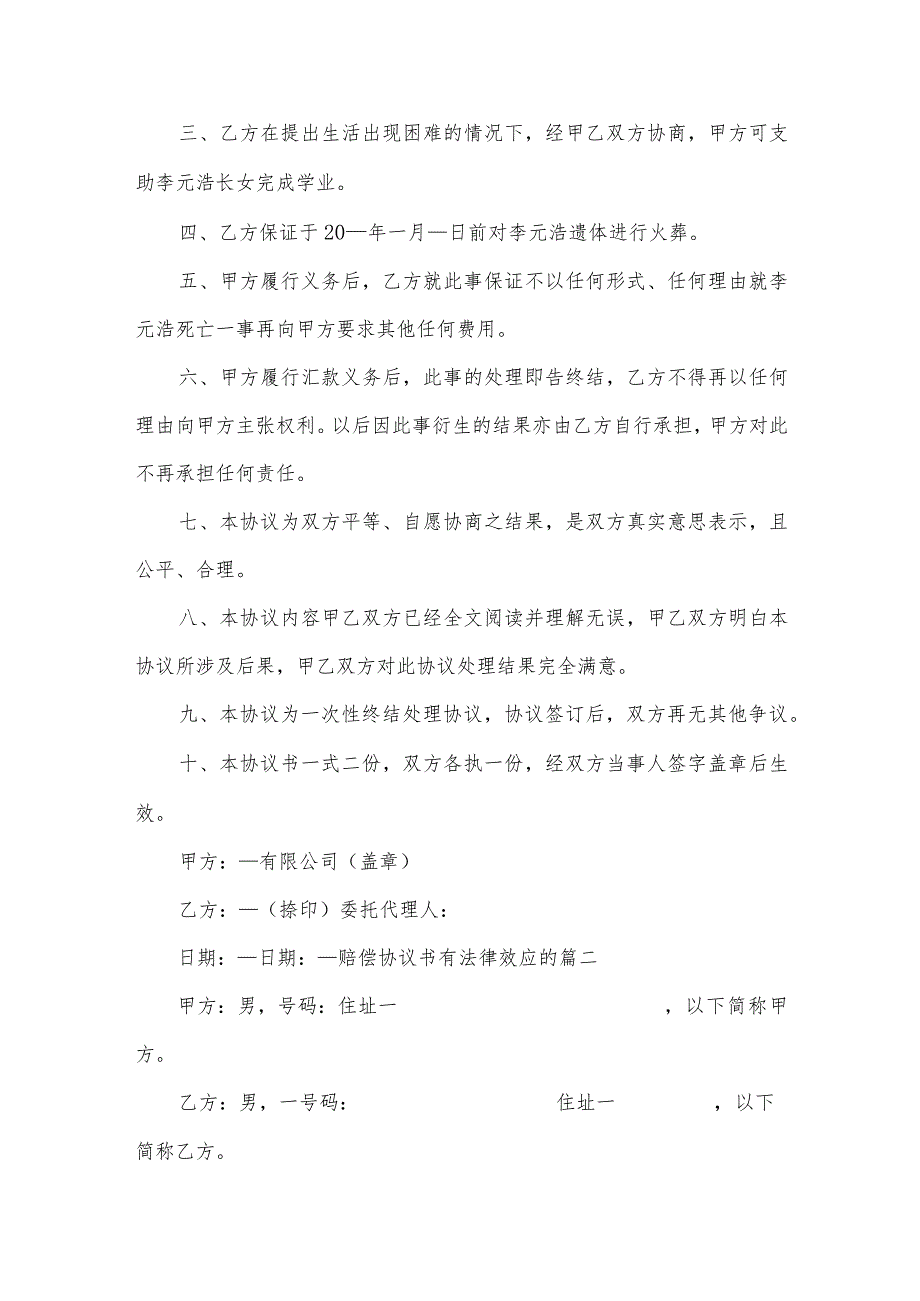 三、乙方在提出生活出现困难的情况下，经甲乙双方协商，甲方可支
助李元浩长女完成学业。
四、乙方保证于 20—年一月—日前对李元浩遗体进行火葬。
五、甲方履行义务后，乙方就此事保证不以任何形式、任何理由就李
元浩死亡一事再向甲方要求其他任何费用。
六、甲方履行汇款义务后，此事的处理即告终结，乙方不得再以任何
理由向甲方主张权利。以后因此事衍生的结果亦由乙方自行承担，甲方对此
不再承担任何责任。
七、本协议为双方平等、自愿协商之结果，是双方真实意思表示，且
公平、合理。
八、本协议内容甲乙双方已经全文阅读并理解无误，甲乙双方明白本
协议所涉及后果，甲乙双方对此协议处理结果完全满意。
九、本协议为一次性终结处理协议，协议签订后，双方再无其他争议。
十、本协议书一式二份，双方各执一份，经双方当事人签字盖章后生
效。
甲方：—有限公司（盖章）
乙方：—（捺印）委托代理人：
日期：—日期：—赔偿协议书有法律效应的篇二
甲方：男，号码：住址一 ，以下简称甲
方。
乙方：男，一号码： 住址一 ，以下
简称乙方。